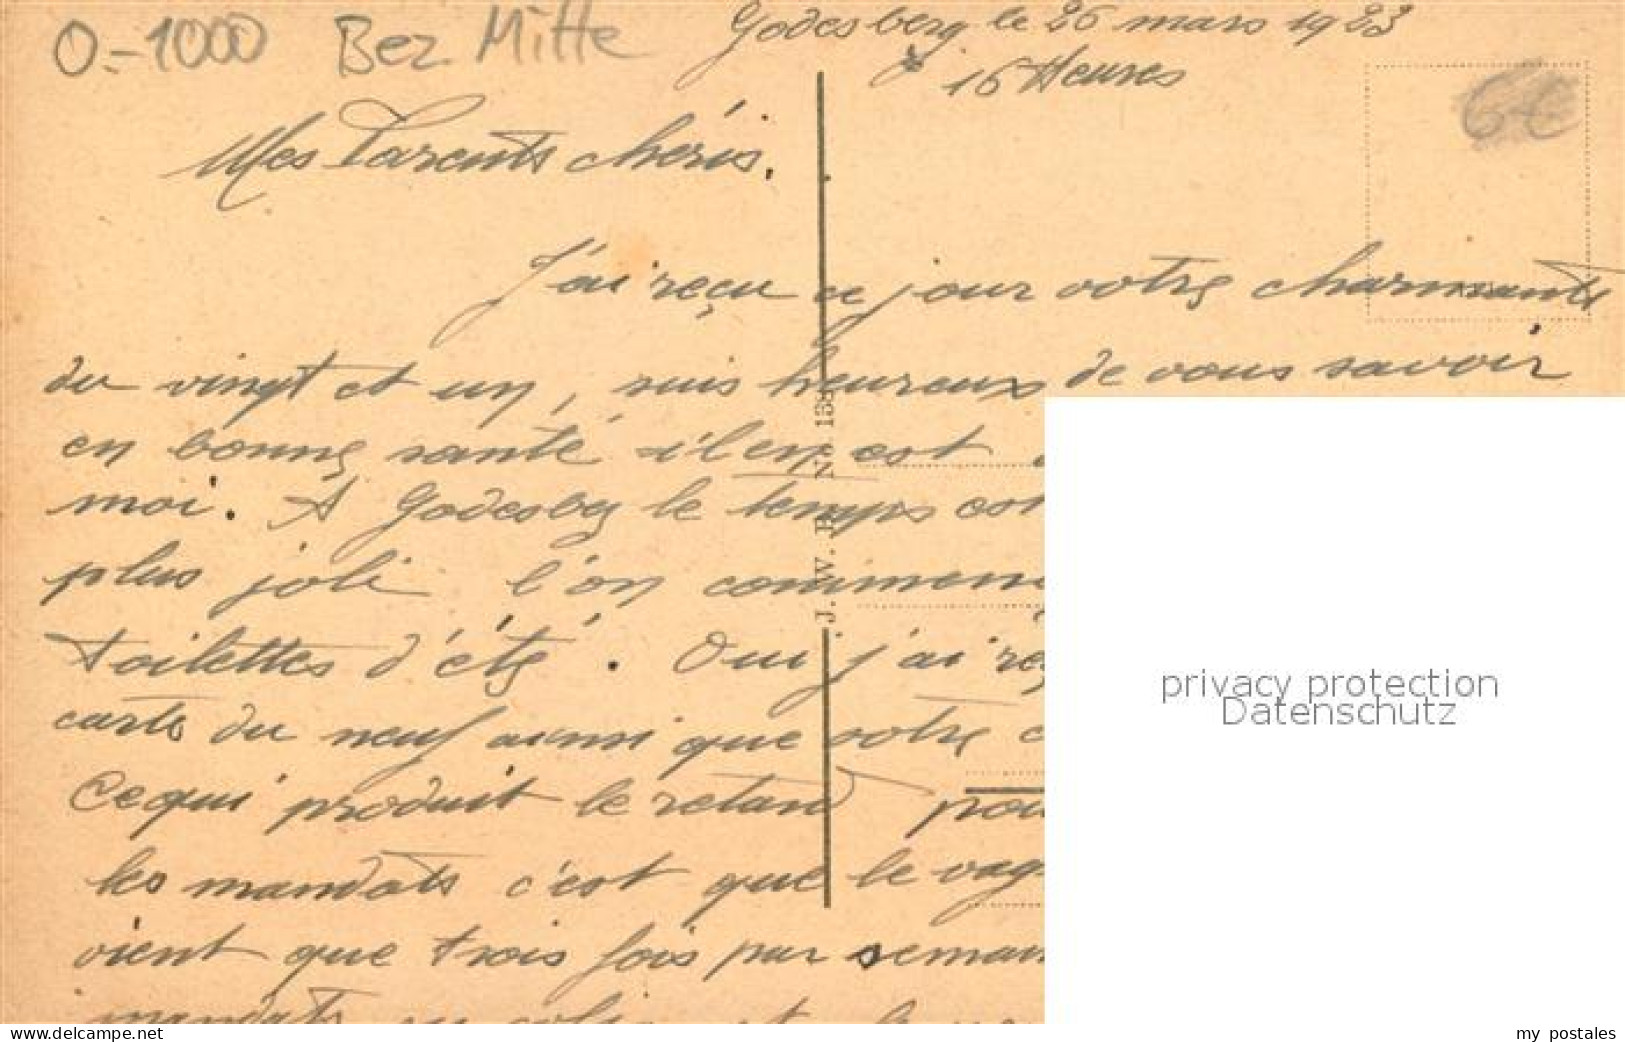 O-1000 Bez. Mitte
Godesberg le 26 mars 1923
16 Heures
6€
Mes Parents chéris.
J'ai reçu ce jour votre charmante
du vingt et un, suis heureux de vous savoir
en bonne santé s'il en est
moi. A Godesberg le temps est
plus joli l'on commen
toilettes d'été. Oui j'ai re
carte du neuf ainsi que votre c
Ce qui produit le retard pou
les mandats c'est que le vag
vient que trois fois par seman
mandats
J. W. B. No. 138
privacy protection
Datenschutz
www.delcampe.net
my_postales